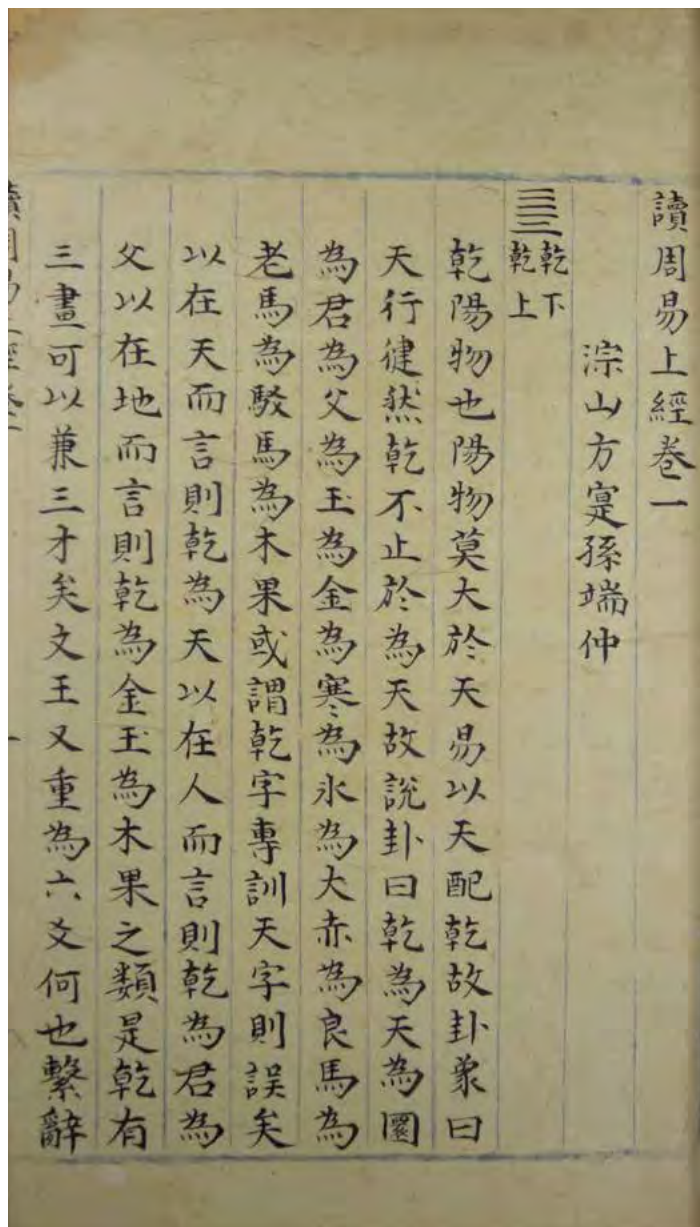 讀周易上經卷一
淙山方寔孫端仲
乾下
乾上
乾陽物也陽物莫大於天易以天配乾故卦象曰
天行徤然乾不止於為天故說卦曰乾為天為圜
為君為父為玉為金為寒為氷為大赤為良馬為
老馬為駁馬為木果或謂乾字專訓天字則誤矣
以在天而言則乾為天以在人而言則乾為君為
父以在地而言則乾為金玉為木果之類是乾有
三畫可以兼三才矣文王又重為六爻何也繫辭
讀周易上經卷一
一